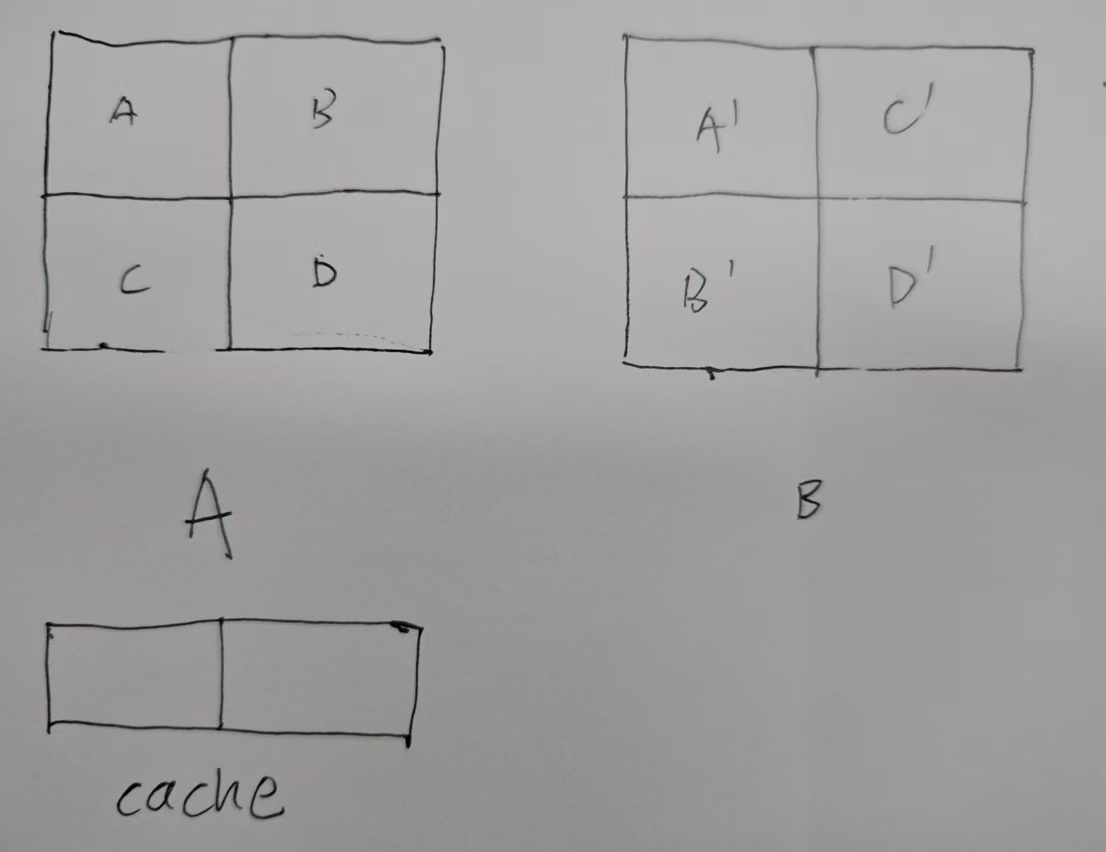 A B
C D
A' C'
B' D'
A
B
cache